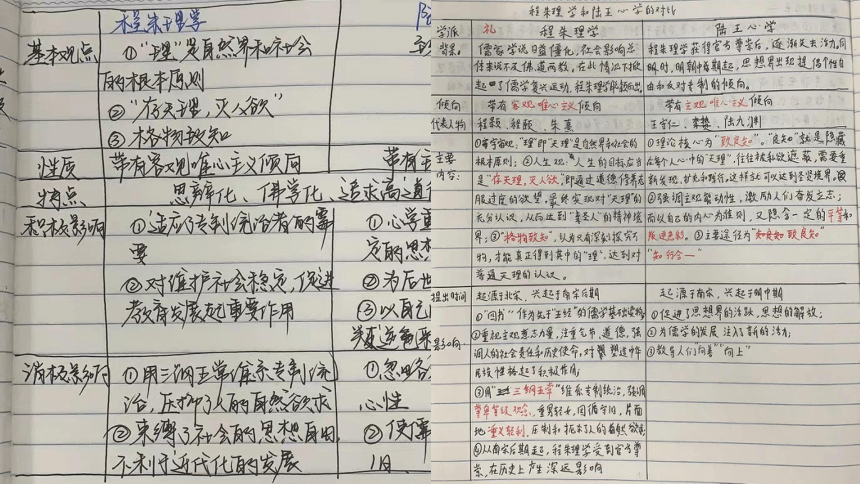 程朱理学
基本观点
①"理"是自然界和社会
的根本原则
②"存天理,灭人欲"
③格物致知
性质
带有客观唯心主义倾向
带有主
特点
思辨化、儒学化、追求高道
积极影响
①适应了专制统治者的需
要
②对维护社会稳定,促进
教育发展起重要作用
①心学重
定的思想
②为后世
③以自己
消极影响
①用三纲五常维系专制统
治,压抑了人的自然欲求
②束缚了社会的思想自由,
不利于近代化的发展
①忽略
心性
②使儒
程朱理学和陆王心学的对比
学派
礼
程朱理学
陆王心学
背景
儒家学说日益僵化,社会影响总
体来说不及佛、道两教,在此情况下掀
起一了儒学复兴运动,程朱理学
程朱理学获得官方尊崇后,逐渐失去活力,同
时,明朝中期起,思想界出现提倡个性自
由和反对专制的倾向。
倾向
带有客观唯心主义倾向
带有主观唯心主义倾向
代表人物
程颢、程颐、朱熹
王守仁、陆九渊
主要
内容:
①"理"即"天理"是自然界和社会的
根本原则;②人生观:人生的目标应当
是"存天理,灭人欲",即通过道德修养克
服过度的欲望,最终实现对"天理"的
充分认识,从而达到"圣人"的精神境
界;③"格物致知",认为只有深刻探究万
物,才能真正得到其中的"理",达到对
普遍天理的认识。
①理论核心为"致良知"。"良知"就是隐藏
在每个人心中的"天理",往往被私欲遮蔽,需要重
新发现、扩充和践行,这样就可以达到圣贤境界。
②强调主观能动性,激励人们奋发立志;
而以自己的内心为准则,又隐含一定的平等和
叛逆色彩。③主要途径为"知良知 致良知"
"知行合一"
提出时间
起源于北宋、兴起于南宋后期
起源于南宋,兴起于明中期
影响
①"四书"作为先于"五经"的儒学基础读物
②重视主观意志力量,注重气节、道德,强
调人的社会责任和历史使命,对塑造中华
民族性格起了积极作用;
③用"三纲五常"维系专制统治,强调
尊卑等级观念,重男轻女,因循守旧,片面
地重义轻利,压制和扼杀了人的自然欲求
④从南宋后期起,程朱理学受到官方尊
崇,在历史上产生深远影响
①促进了思想界的活跃,思想的解放;
②为儒学的发展注入了新的活力;
③教导人们"向善""向上"